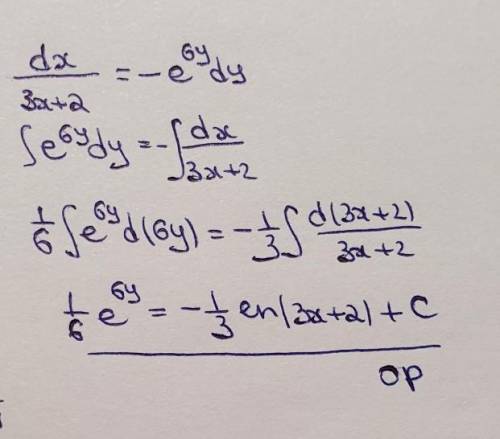 dx/(3x+2) = -e^{6y}dy
∫e^{6y}dy = -∫dx/(3x+2)
1/6 ∫e^{6y}d(6y) = -1/3 ∫d(3x+2)/(3x+2)
1/6 e^{6y} = -1/3 en|3x+2| + C
op